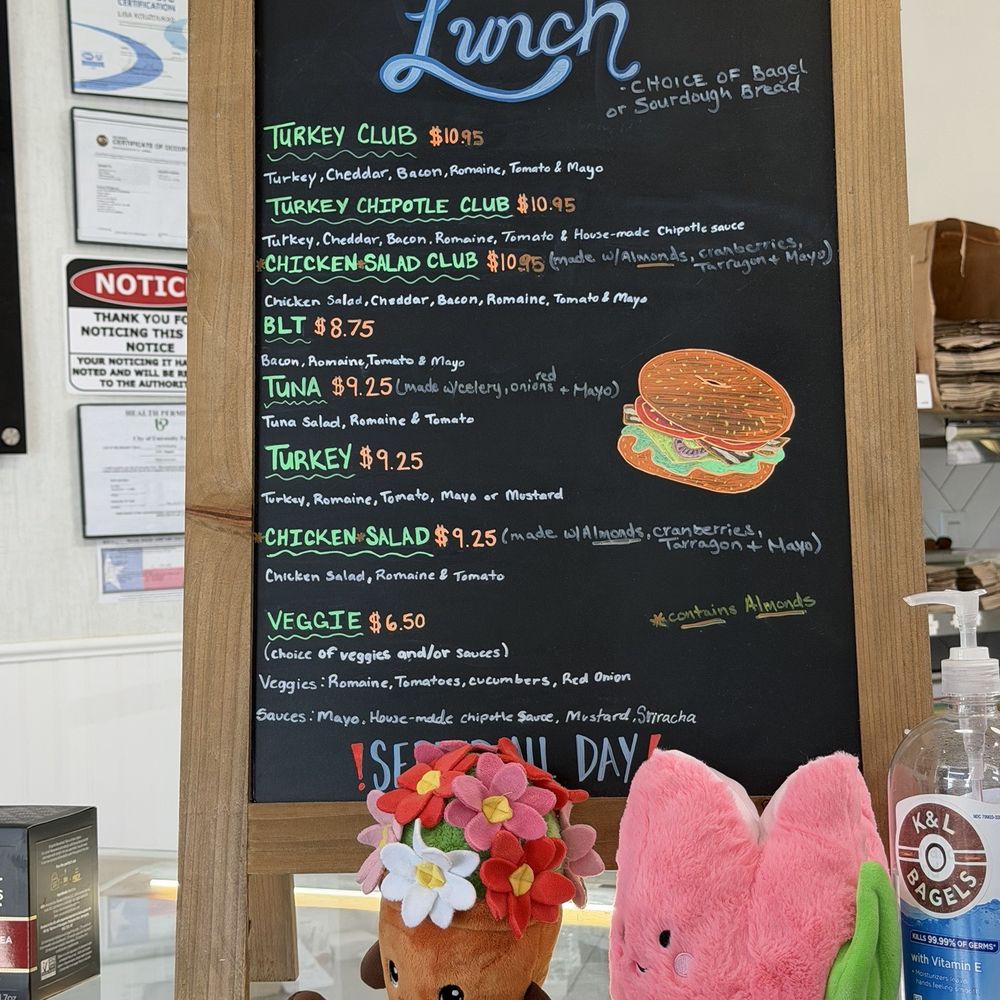 Lunch
- CHOICE OF Bagel
or Sourdough Bread
TURKEY CLUB $10.95
Turkey, Cheddar, Bacon, Romaine, Tomato & Mayo
TURKEY CHIPOTLE CLUB $10.95
Turkey, Cheddar, Bacon, Romaine, Tomato & House-made Chipotle sauce
*CHICKEN*SALAD CLUB $10.95 (made w/Almonds, cranberries,
Tarragon + Mayo)
Chicken Salad, Cheddar, Bacon, Romaine, Tomato & Mayo
BLT $8.75
Bacon, Romaine, Tomato & Mayo
TUNA $9.25 (made w/celery, red onions + Mayo)
Tuna Salad, Romaine & Tomato
TURKEY $9.25
Turkey, Romaine, Tomato, Mayo or Mustard
*CHICKEN*SALAD $9.25 (made w/Almonds, cranberries,
Tarragon + Mayo)
Chicken Salad, Romaine & Tomato
*contains Almonds
VEGGIE $6.50
(choice of veggies and/or sauces)
Veggies: Romaine, Tomatoes, cucumbers, Red Onion
Sauces: Mayo, House-made chipotle Sauce, Mustard, Sriracha
! ALL DAY!
CERTIFICATION
CERTIFICATE OF
NOTIC
THANK YOU FO
NOTICING THIS
NOTICE
YOUR NOTICING IT HA
NOTED AND WILL BE RE
TO THE AUTHORIT
HEALTH PERM
City of University
K&L
BAGELS
KILLS 99.99% OF GERMS*
with Vitamin E
• Moisturizers leave
hands feeling